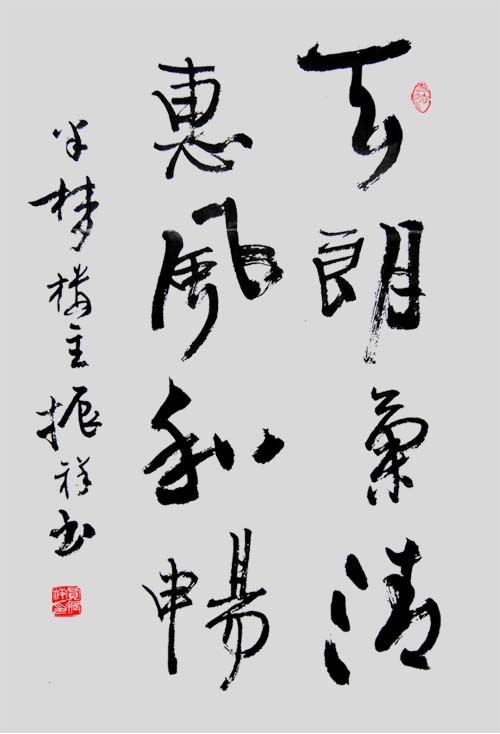 天朗氣清
惠風和暢
半梦楼主振祥书